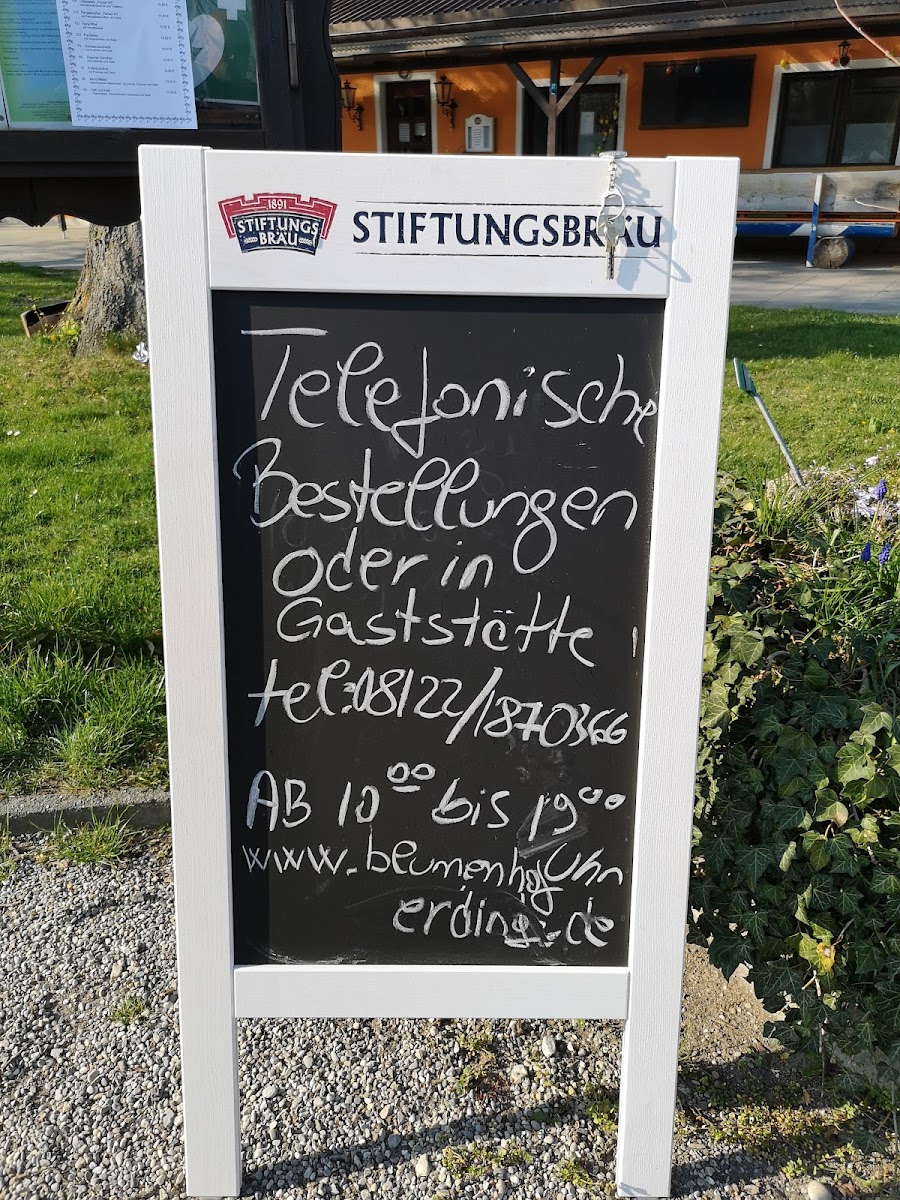 1891
STIFTUNGS
BRÄU
STIFTUNGSBRÄU
Telefonische
Bestellungen
oder in
Gaststätte
tel:08122/1870366
AB 10⁰⁰ bis 19⁰⁰
Uhr
www.blumenhof
erding.de